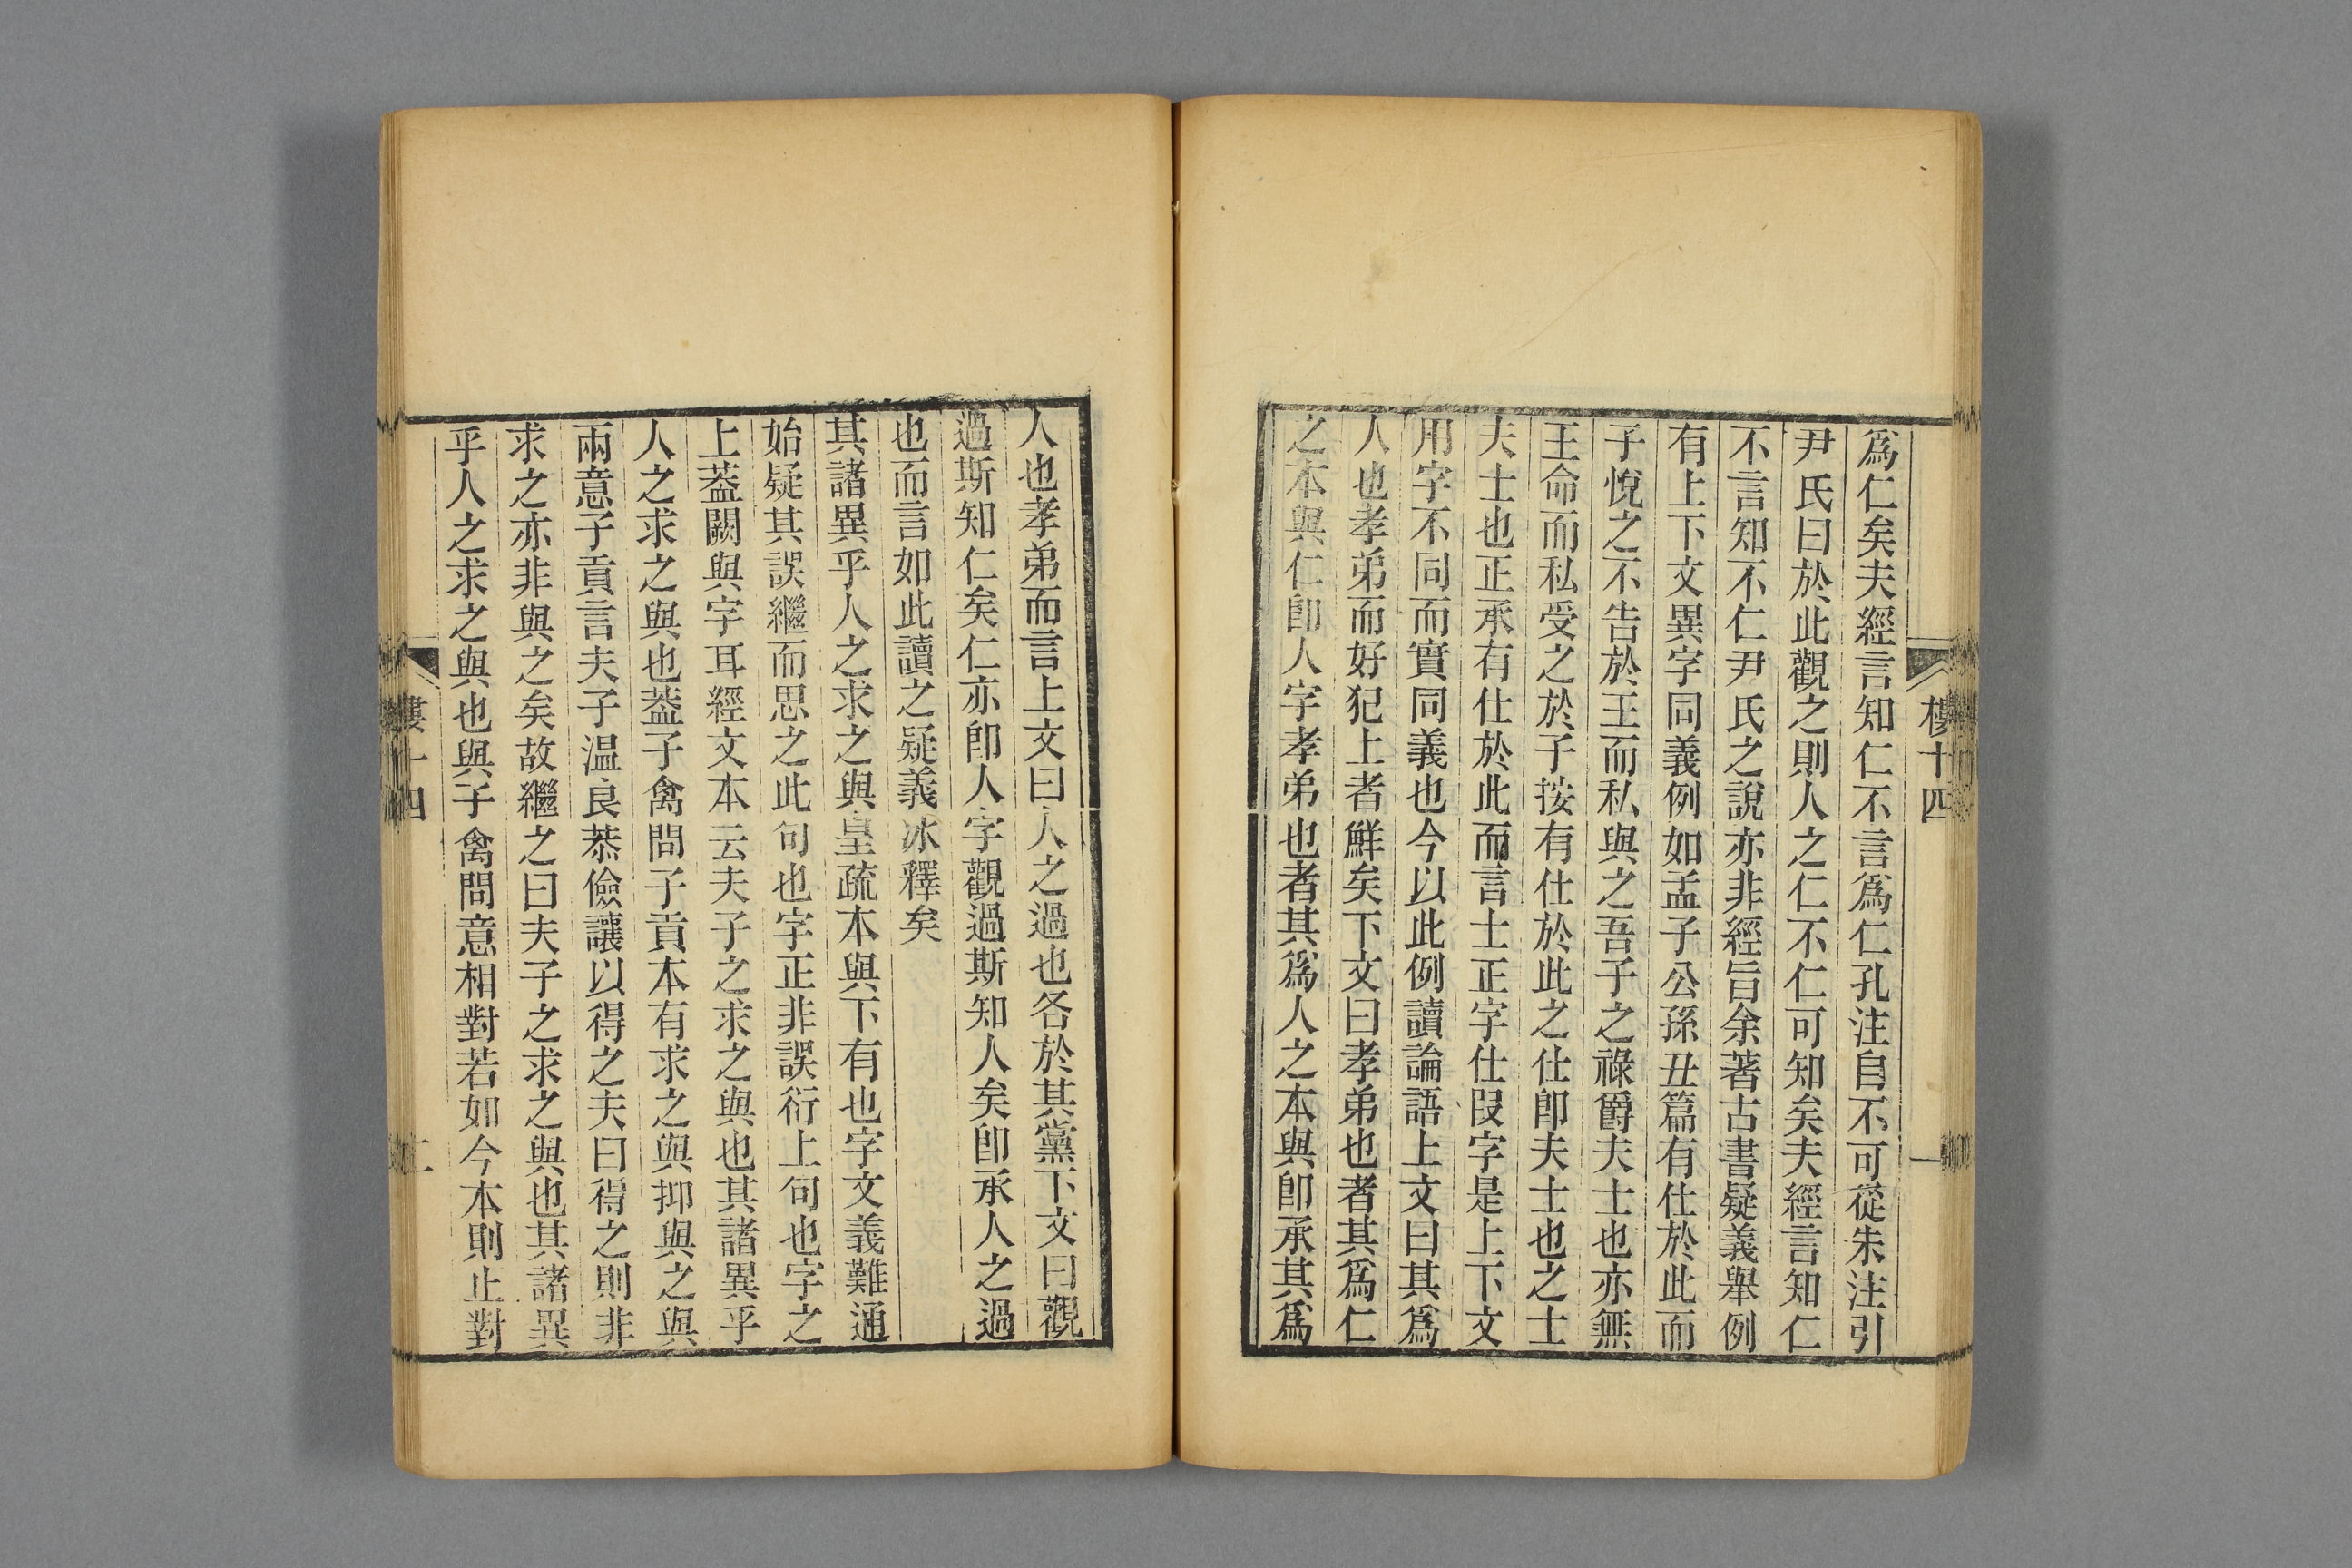 樓十四
一
爲仁矣夫經言知仁不言爲仁孔注自不可從朱注引
尹氏曰於此觀之則人之仁不仁可知矣夫經言知仁
不言知不仁尹氏之說亦非經旨余著古書疑義舉例
有上下文異字同義例如孟子公孫丑篇有仕於此而
子悅之不告於王而私與之吾子之祿爵夫士也亦無
王命而私受之於子按有仕於此之仕卽夫士也之士
夫士也正承有仕於此而言士正字仕叚字是上下文
用字不同而實同義也今以此例讀論語上文曰其爲
人也孝弟而好犯上者鮮矣下文曰孝弟也者其爲仁
之本與仁卽人字孝弟也者其爲人之本與卽承其爲
人也孝弟而言上文曰人之過也各於其黨下文曰觀
過斯知仁矣仁亦卽人字觀過斯知人矣卽承人之過
也而言如此讀之疑義冰釋矣
其諸異乎人之求之與皇疏本與下有也字文義難通
始疑其誤繼而思之此句也字正非誤衍上句也字之
上葢闕與字耳經文本云夫子之求之與也其諸異乎
人之求之與也葢子禽問子貢本有求之與抑與之與
兩意子貢言夫子温良恭儉讓以得之夫曰得之則非
求之亦非與之矣故繼之曰夫子之求之與也其諸異
乎人之求之與也與子禽問意相對若如今本則止對
樓十四
二